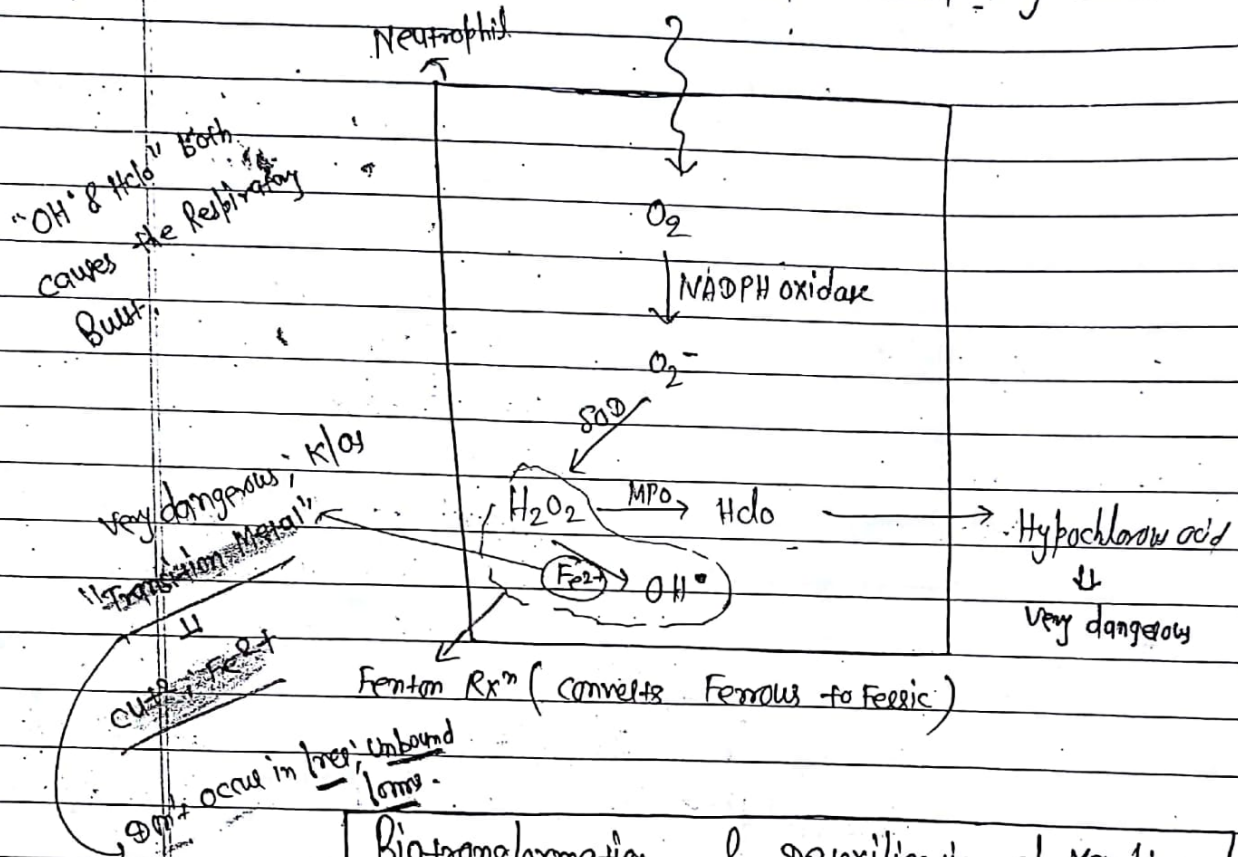 Neutrophil
"OH• & Hclo" both
causes the Respiratory
Bust.
O2
NADPH oxidase
O2-
SOD
H2O2
MPO
Hclo
Hypochlorous acid
⇓
very dangerous
Fe2+
OH•
very dangerous; K/as
"Transition Metal"
⇓
cu+2; Fe2+
Fenton Rxn (converts Ferrous to Ferric)
Don't occur in free; unbound
forms.
Biotransformation &